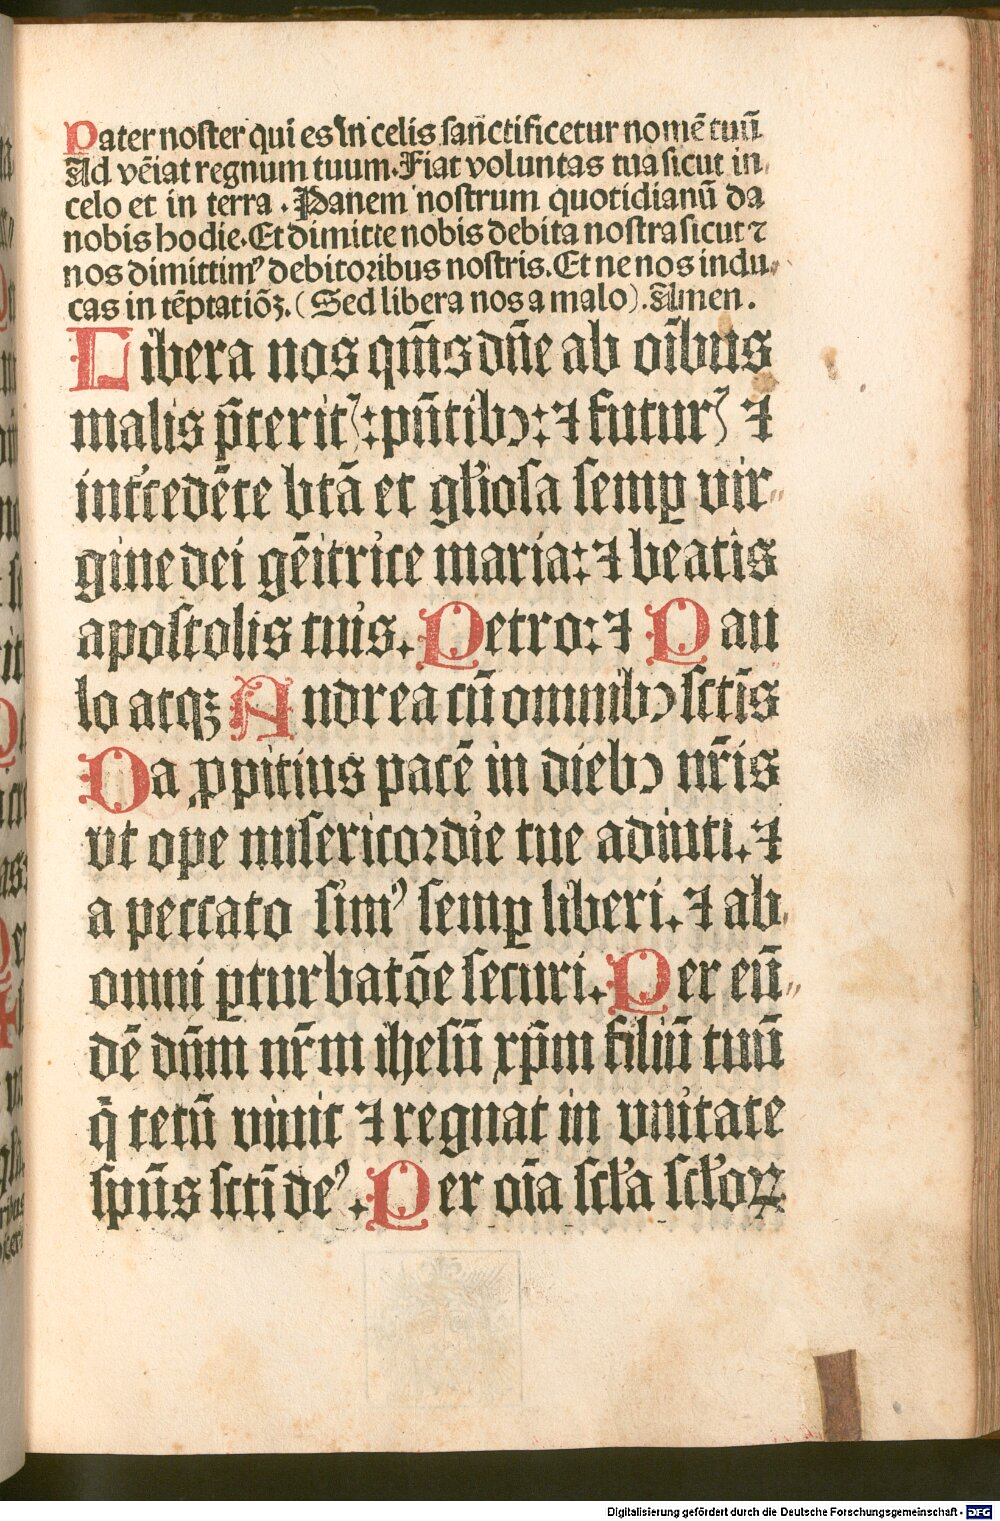 Pater noster qui es in celis sanctificetur nomē tuū
Ad vēiat regnum tuum. Fiat voluntas tua sicut in
celo et in terra. Panem nostrum quotidianū da
nobis hodie. Et dimitte nobis debita nostra sicut ⁊
nos dimittimꝰ debitoribus nostris. Et ne nos indu
cas in tēptatiōꝫ. (Sed libera nos a malo). Amen.
Libera nos qm̄s dn̄e ab oībus
malis p̄terit: pn̄tibꝰ: ⁊ futur ⁊
int̄cedēte btā et gl̄iosa semꝑ vir⸗
gine dei gēitrice maria: ⁊ beatis
apostolis tuis. Petro: ⁊ Pau
lo atqꝫ Andrea cū omnibꝰ sctīs
Da ꝓpitius pacē in diebꝰ nr̄is
vt ope misericordie tue adiuti. ⁊
a peccato simꝰ semꝑ liberi. ⁊ ab
omni ꝑturbatōe securi. Per eū⸗
dē dn̄m nr̄m ihesū xp̄m filiū tuū
q̄ tecū viuit ⁊ regnat in vnitate
spūs sctī deꝰ. Per oīa scl̄a scl̄oꝝ
Digitalisierung gefördert durch die Deutsche Forschungsgemeinschaft - DFG